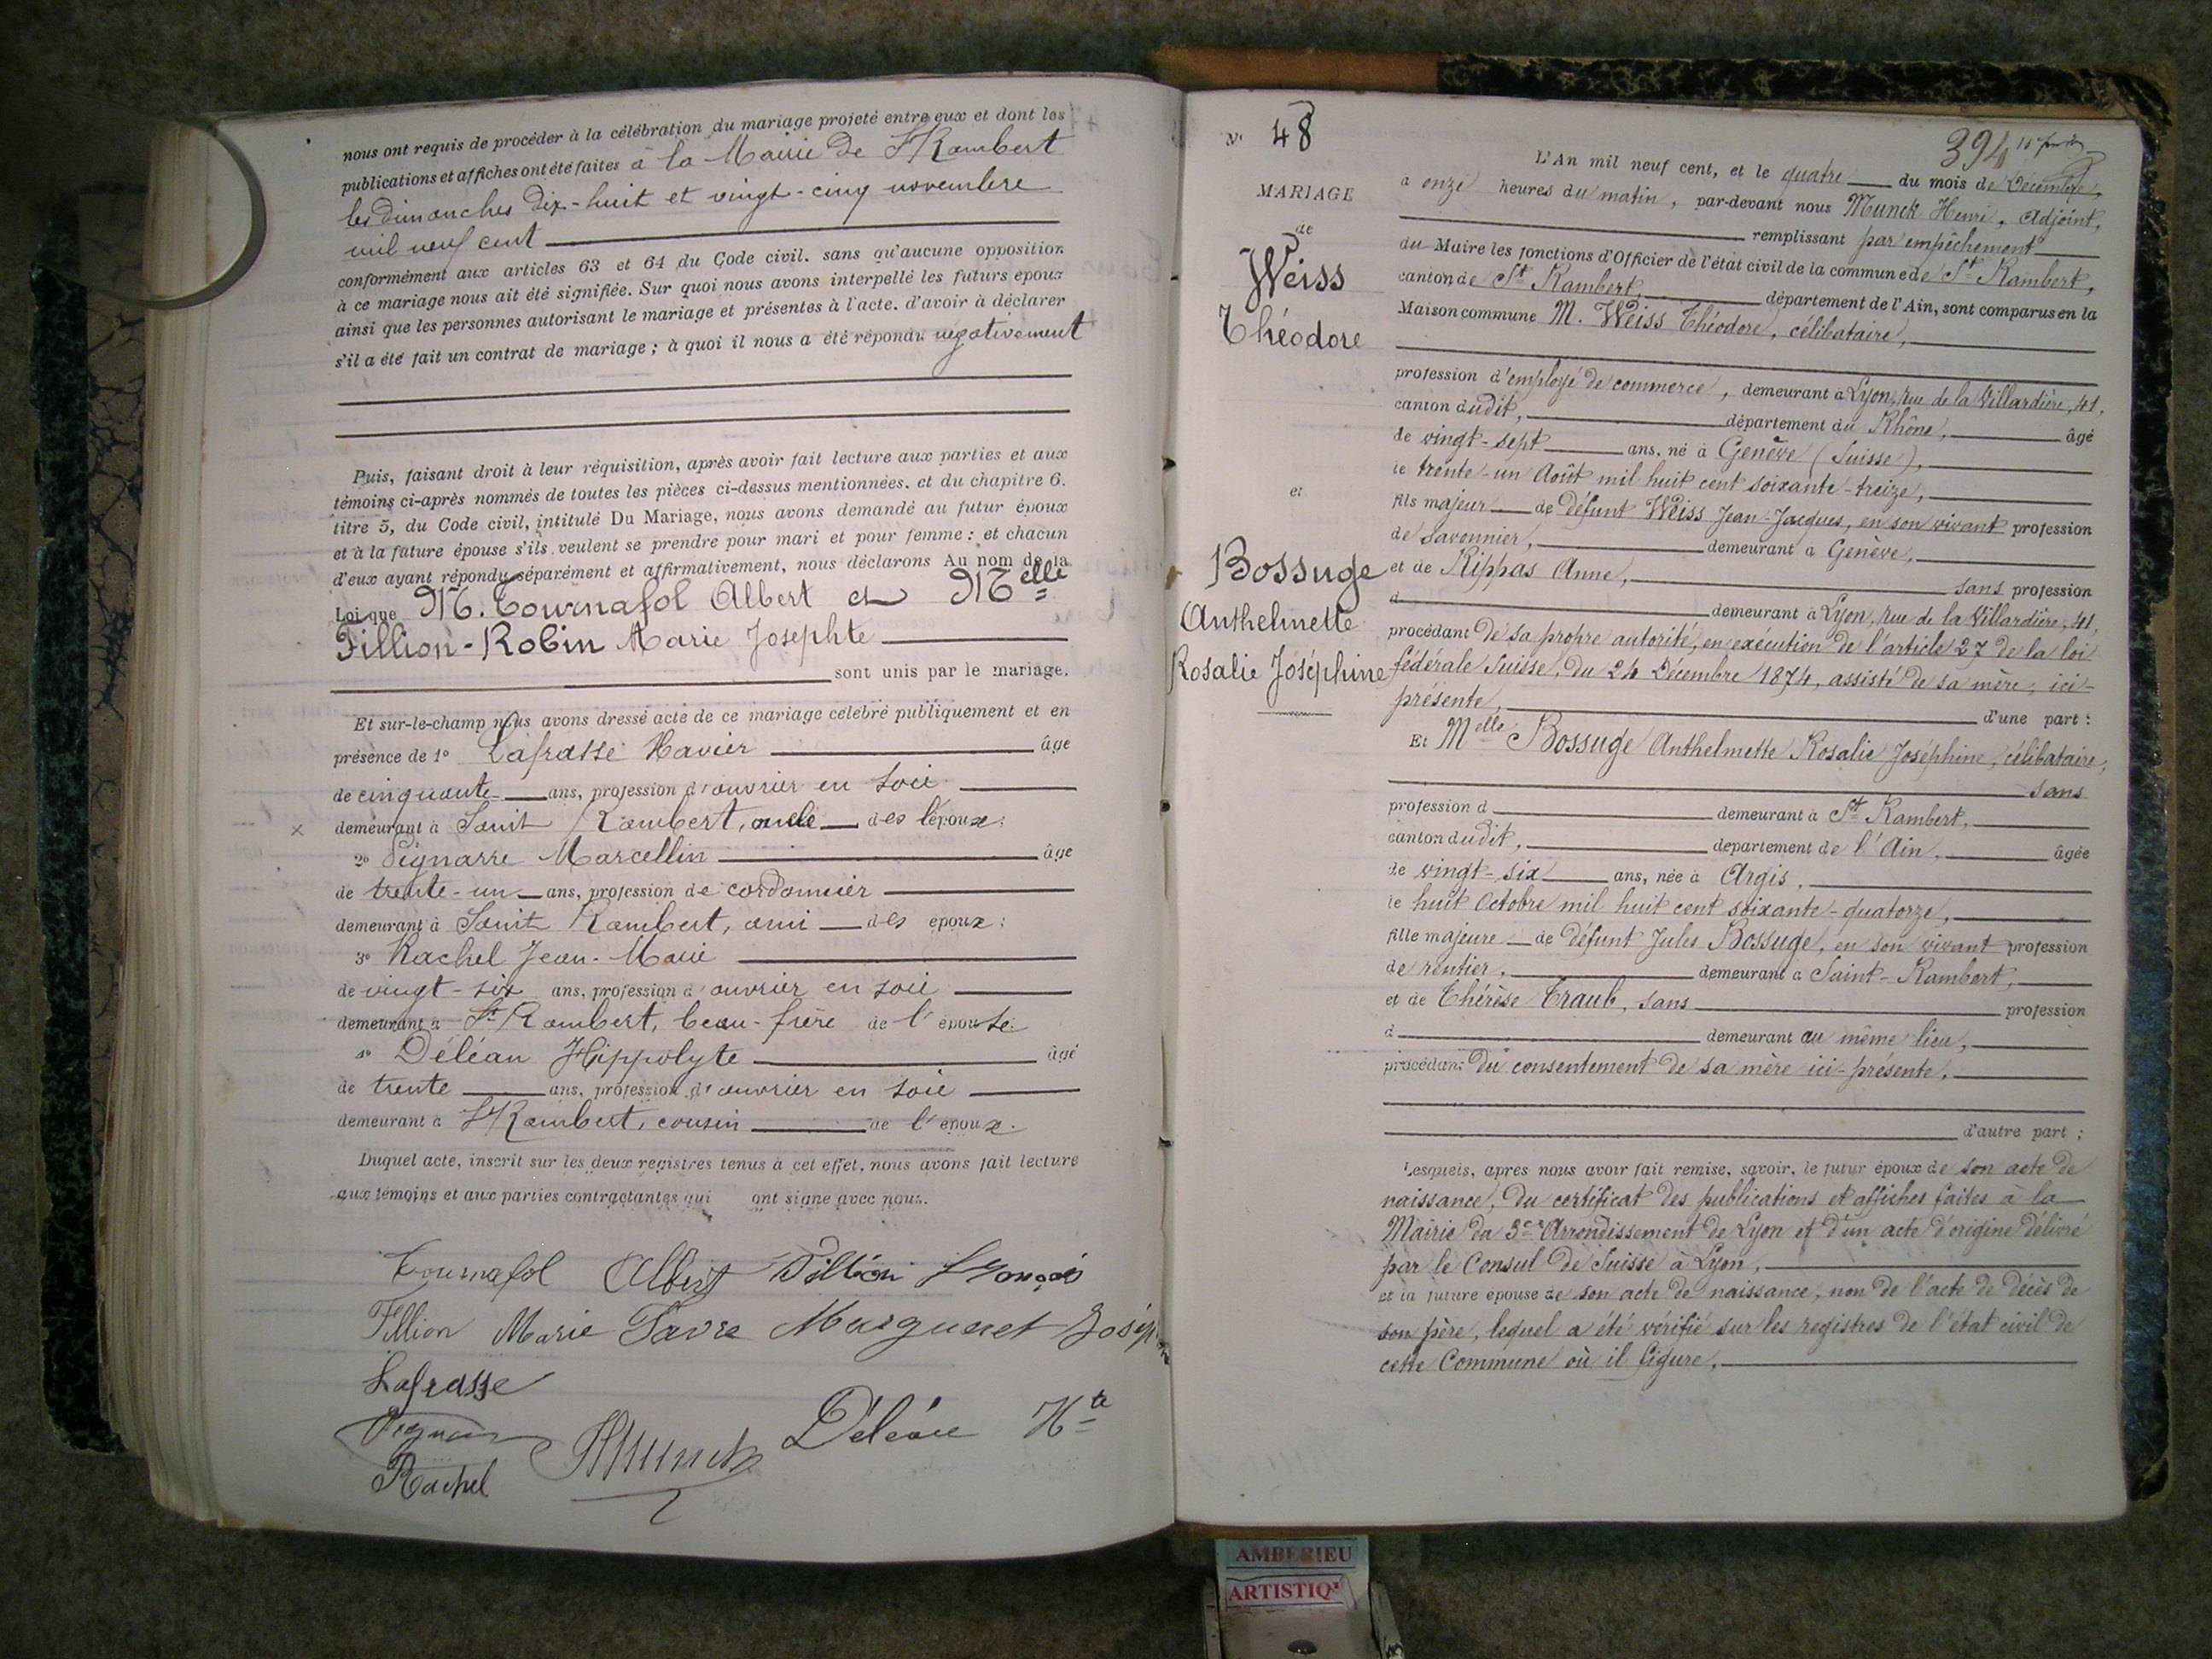 nous ont requis de procéder à la célébration du mariage projeté entre eux et dont les
publications et affiches ont été faites à la Mairie de St Rambert
les dimanches dix-huit et vingt-cinq novembre
mil neuf cent
conformément aux articles 63 et 64 du Code civil. sans qu'aucune opposition
à ce mariage nous ait été signifiée. Sur quoi nous avons interpellé les futurs epoux
ainsi que les personnes autorisant le mariage et présentes à l'acte. d'avoir à déclarer
s'il a été fait un contrat de mariage ; à quoi il nous a été répondu négativement
Puis, faisant droit à leur réquisition, après avoir fait lecture aux parties et aux
témoins ci-après nommés de toutes les pièces ci-dessus mentionnées. et du chapitre 6.
titre 5, du Code civil, intitulé Du Mariage, nous avons demandé au futur époux
et à la future épouse s'ils veulent se prendre pour mari et pour femme : et chacun
d'eux ayant répondu séparément et affirmativement, nous déclarons Au nom de la
Loi que M. Tournafol Albert et Melle
Fillion-Robin Marie Josephte
sont unis par le mariage.
Et sur-le-champ nous avons dressé acte de ce mariage célébré publiquement et en
présence de 1° Lafrasse Xavier âge
de cinquante ans, profession d'ouvrier en soie
demeurant à Saint Rambert, oncle des l'époux :
2° Pignarre Marcellin âge
de trente-un ans, profession de cordonnier
demeurant à Saint Rambert, ami des epoux :
3° Rachel Jean-Marie
de vingt-six ans, profession d'ouvrier en soie
demeurant à St Rambert, beau-frère de l'épouse
4° Déléan Hippolyte âgé
de trente ans, profession d'ouvrier en soie
demeurant à St Rambert, cousin de l'epoux.
Duquel acte, inscrit sur les deux registres tenus à cet effet, nous avons fait lecture
aux témoins et aux parties contractantes qui ont signé avec nous.
Tournafol Albert Fillion François
Fillion Marie Favre Marguerit Josép
Lafrasse
Déléan Hte
HMunck
Rachel
N° 48
394
MARIAGE
de
Weiss
Théodore
et
Bossuge
Anthelmette
Rosalie Joséphine
L'An mil neuf cent, et le quatre du mois de Décembre,
à onze heures du matin, par-devant nous Munck Henri, Adjoint,
remplissant par empêchement
du Maire les fonctions d'Officier de l'état civil de la commune de St Rambert,
canton de St Rambert, département de l'Ain, sont comparus en la
Maison commune M. Weiss Théodore, célibataire,
profession d'employé de commerce, demeurant à Lyon, rue de la Villardière, 41,
canton dudit, département du Rhône, âgé
de vingt-sept ans, né à Genève (Suisse),
le trente-un Août mil huit cent soixante-treize,
fils majeur de défunt Weiss Jean-Jacques, en son vivant profession
de savonnier, demeurant à Genève,
et de Rippas Anne, sans profession
d demeurant à Lyon, rue de la Villardière, 41,
procédant de sa propre autorité, en exécution de l'article 27 de la loi
fédérale Suisse, du 24 Décembre 1874, assisté de sa mère, ici-
présente, d'une part :
Et Melle Bossuge Anthelmette Rosalie Joséphine, célibataire,
sans
profession d demeurant à St Rambert,
canton dudit, departement de l'Ain, âgée
de vingt-six ans, née à Argis,
le huit Octobre mil huit cent soixante-quatorze,
fille majeure de défunt Jules Bossuge, en son vivant profession
de rentier, demeurant à Saint-Rambert,
et de Thérèse Traub, sans profession
d demeurant au même lieu,
procédant du consentement de sa mère ici-présente,
d'autre part ;
Lesquels, après nous avoir fait remise, savoir, le futur époux de son acte de
naissance, du certificat des publications et affiches faites à la
Mairie du 3me Arrondissement de Lyon et d'un acte d'origine délivré
par le Consul de Suisse à Lyon,
et la future épouse de son acte de naissance, non de l'acte de décès de
son père, lequel a été vérifié sur les registres de l'état civil de
cette Commune où il figure,
AMBERIEU
ARTISTIQ